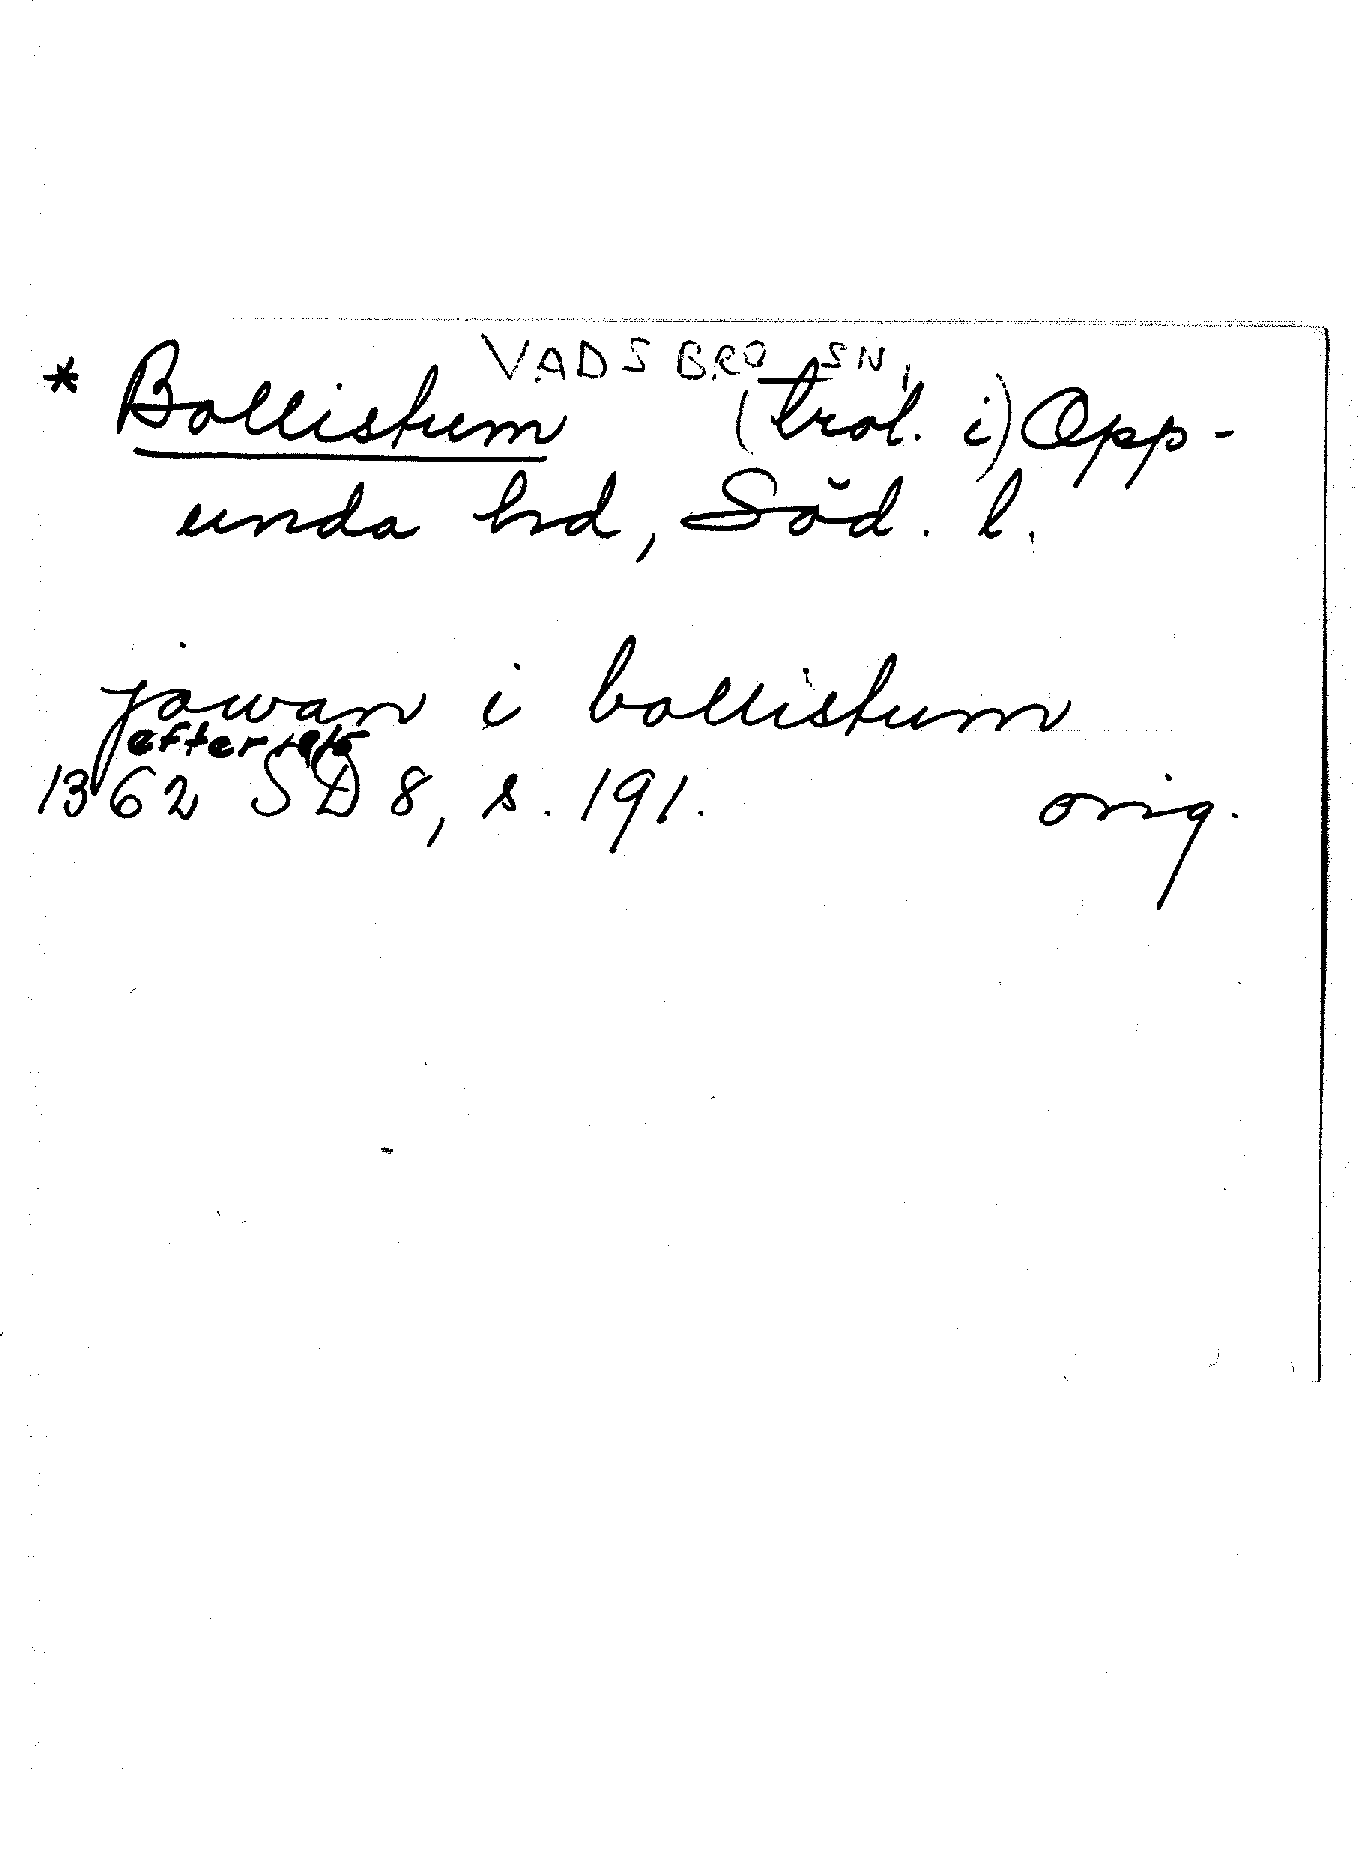 VADSBRO SN,
* Bollistum (trol. i) Opp-
unda hd, Söd. l.
jowan i bollistum
efter 19/5
1362 SD 8, s. 191. orig.